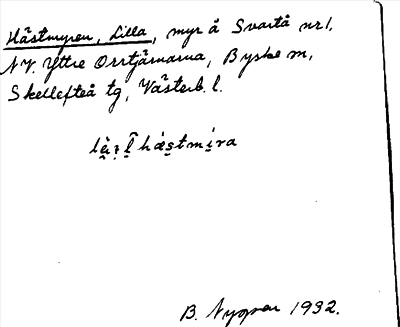 Hästmyren, Lilla, myr å Svartå nr 1,
NV. Yttre Orrtjärnarna, Byske sn,
Skellefteå tg, Västerb. l.
hästmira
B. Nygren 1932.